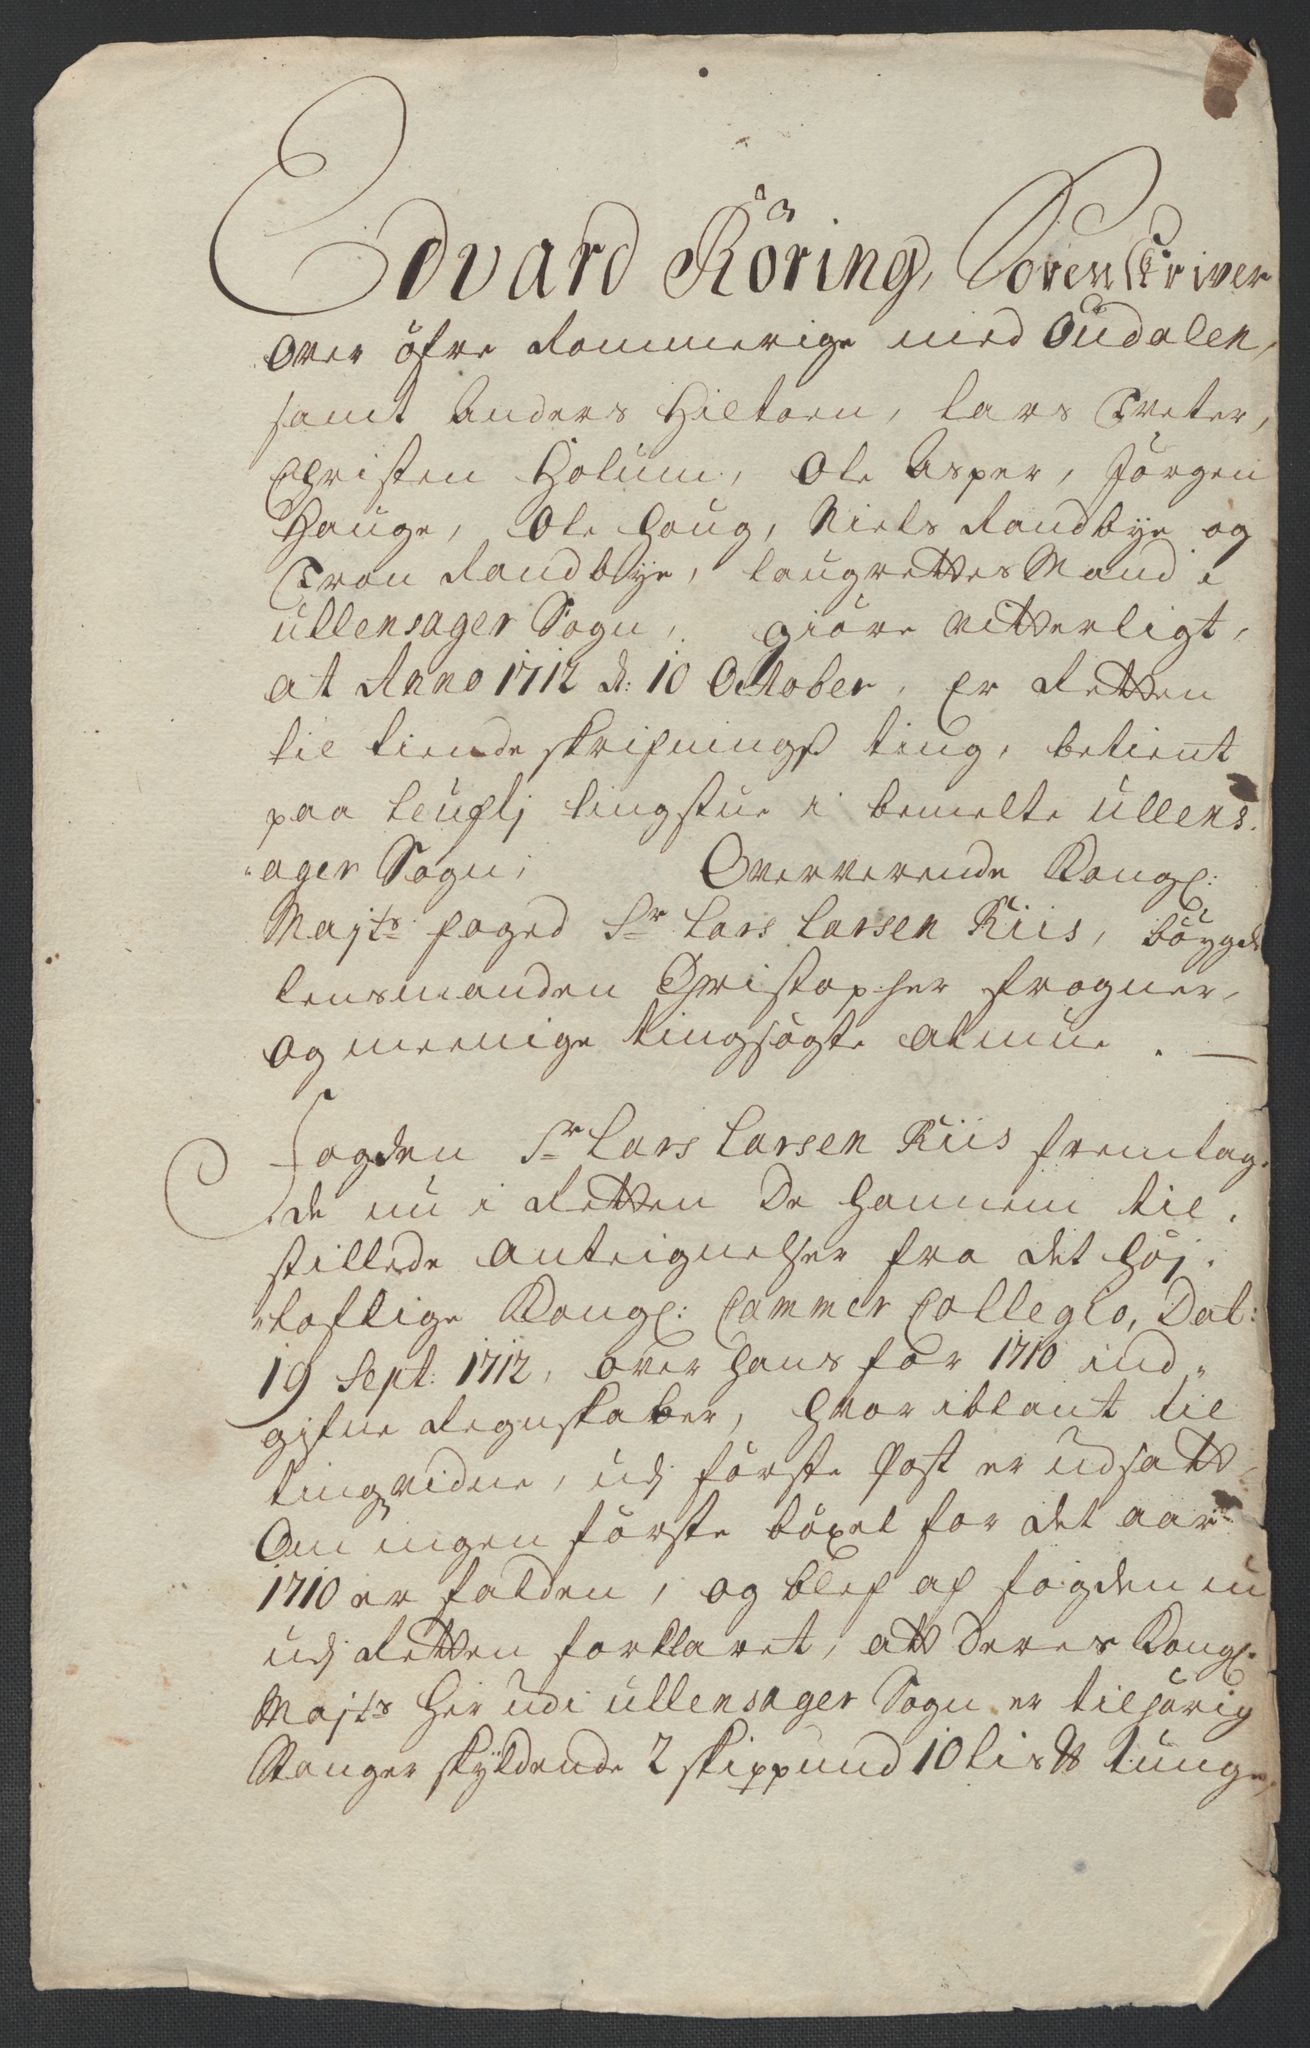 Edvard Röring, Sorenskriver
over öfre Rommerige med Oudalen,
samt Anders Hiltoen, Lars Tveter,
Christen Holum, Ole Asper, Jörgen
Hauge, Ole Houg, Niels Randbye og
Tron Randbye, LaugrettesMænd i
Ullensager Sogn, giöre vitterligt,
at Anno 1712 d: 10 October, er Retten
til tiende skrifnings ting, betient
paa tingstue i bemelte Ullens-
ager Sogn, Oververende Kongl:
Majts foged Sr Lars Larsen Riis, böygde
lensmanden Christopher Frogner,
og meenige tingsögte Almue. —
Fogden Sr Lars Larsen Riis fremlag-
de nu i Retten De hannem til-
stillede Anteignelser fra det höj-
loflige Kongl: Cammer Collegio, Dat:
19 Sept: 1712, over hans for 1710 ind-
gifne Regnskaber, hvor iblant til
tingsvidne, udj förste Post er udsatt,
Om ingen förste böxel for det aar
1710 er falden, og blef af fogden nu
udj Retten forklaret, att Deres Kongl:
Majts her udi Ullensager Sogn er tilhörig
Stanger skÿldende 2 skippund 10 lis℔ tunge,